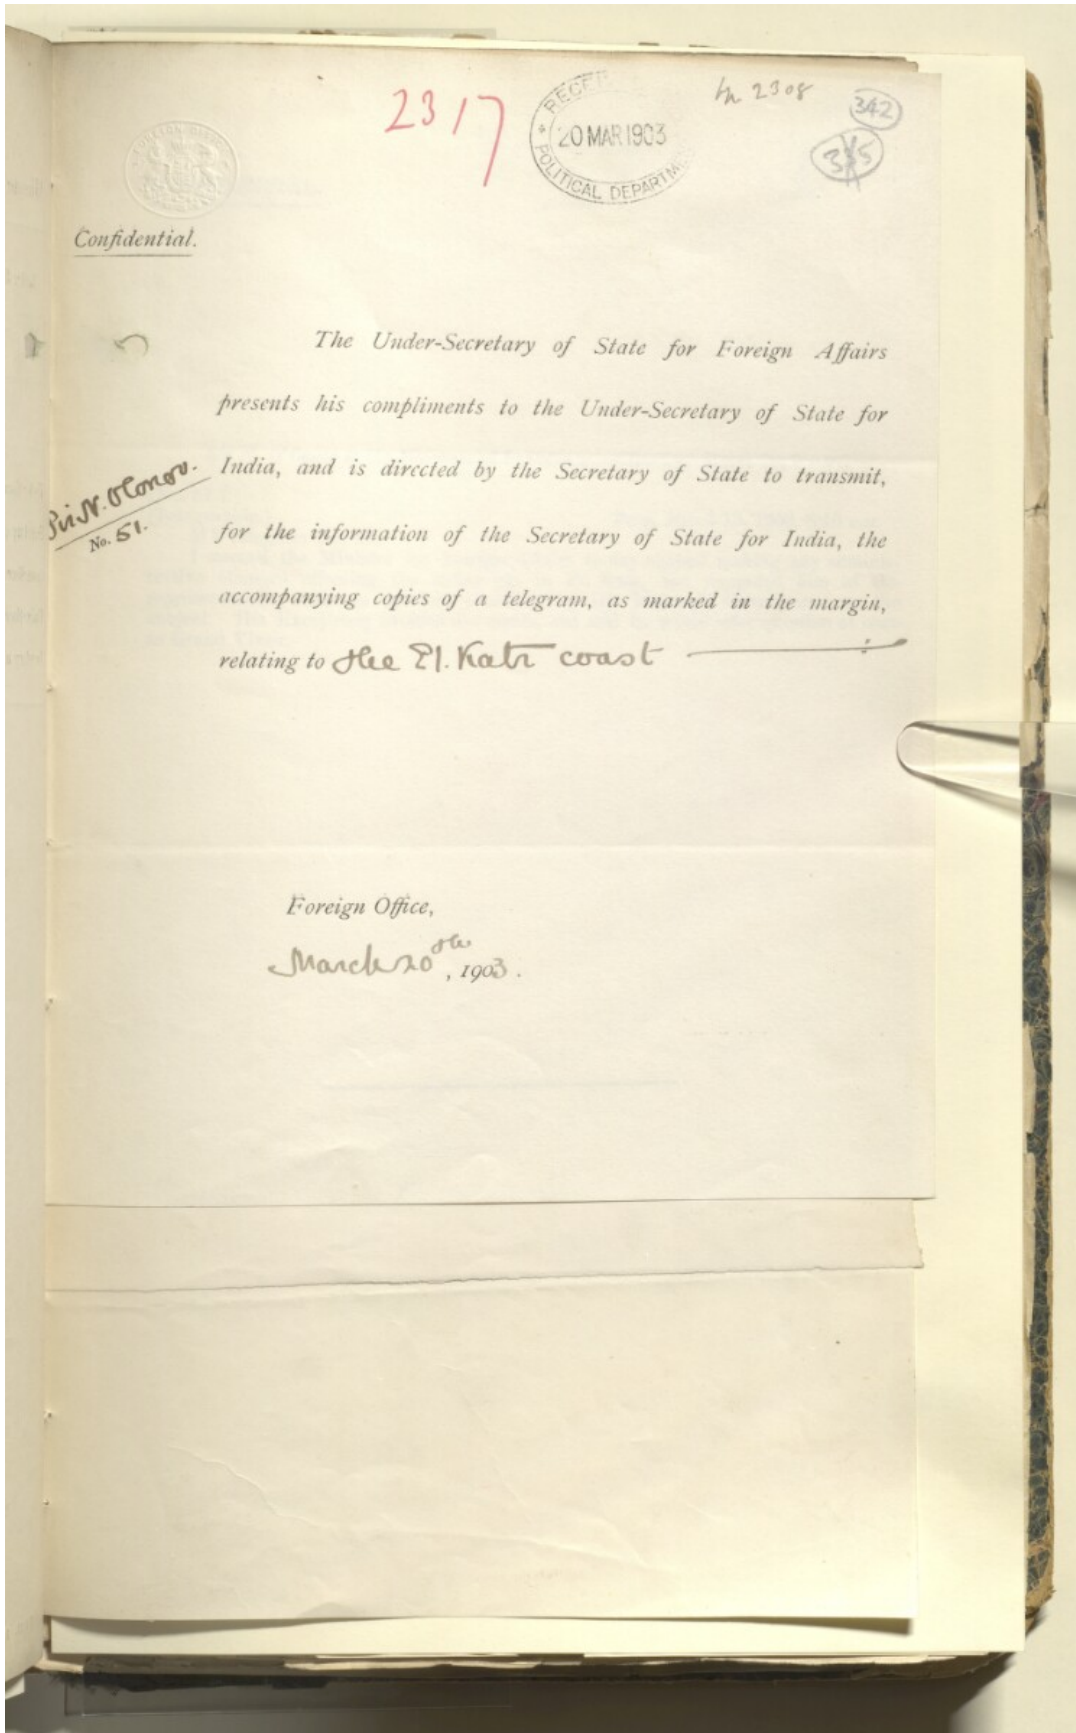 2317
RECE
20 MAR 1903
POLITICAL DEPARTM
In 2308
342
335
Confidential.
The Under-Secretary of State for Foreign Affairs
presents his compliments to the Under-Secretary of State for
India, and is directed by the Secretary of State to transmit,
Sir N. OConor.
No. 51.
for the information of the Secretary of State for India, the
accompanying copies of a telegram, as marked in the margin,
relating to the El. Katr coast
Foreign Office,
March 20th, 1903.